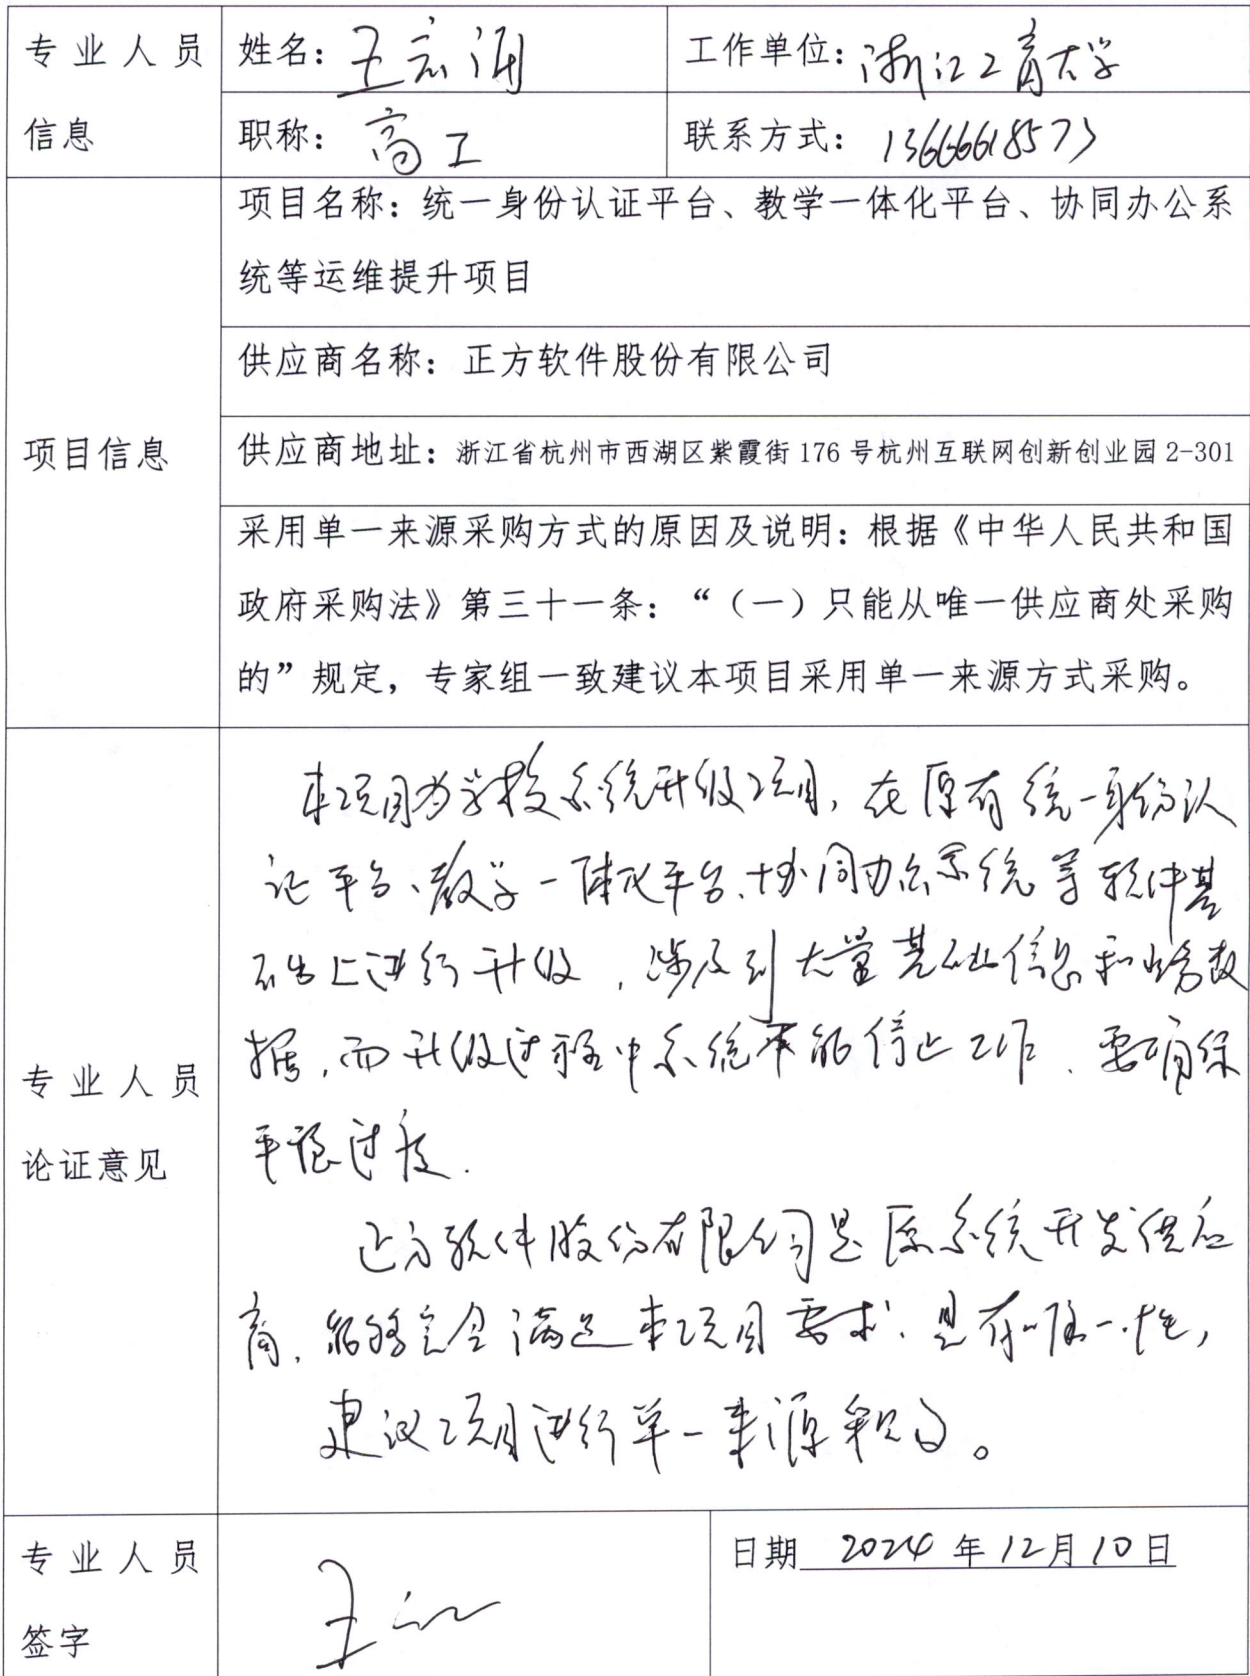 专业人员
信息
姓名：王宏
工作单位：浙江工商大学
职称：高工
联系方式：13666618573
项目信息
项目名称：统一身份认证平台、教学一体化平台、协同办公系
统等运维提升项目
供应商名称：正方软件股份有限公司
供应商地址：浙江省杭州市西湖区紫霞街176号杭州互联网创新创业园2-301
采用单一来源采购方式的原因及说明：根据《中华人民共和国
政府采购法》第三十一条：“（一）只能从唯一供应商处采购
的”规定，专家组一致建议本项目采用单一来源方式采购。
专业人员
论证意见
本项目为学校系统升级项目，在原有统一身份认
证平台、教学一体化平台、协同办公系统等软件基
础上进行升级，涉及到大量基础信息和业务数
据，而升级过程中系统不能停止工作，要确保
平稳过度.
正方软件股份有限公司是原系统开发供应
商，能够完全满足本项目要求，具有唯一性，
建议项目进行单一来源采购。
专业人员
签字
王
日期 2024年12月10日